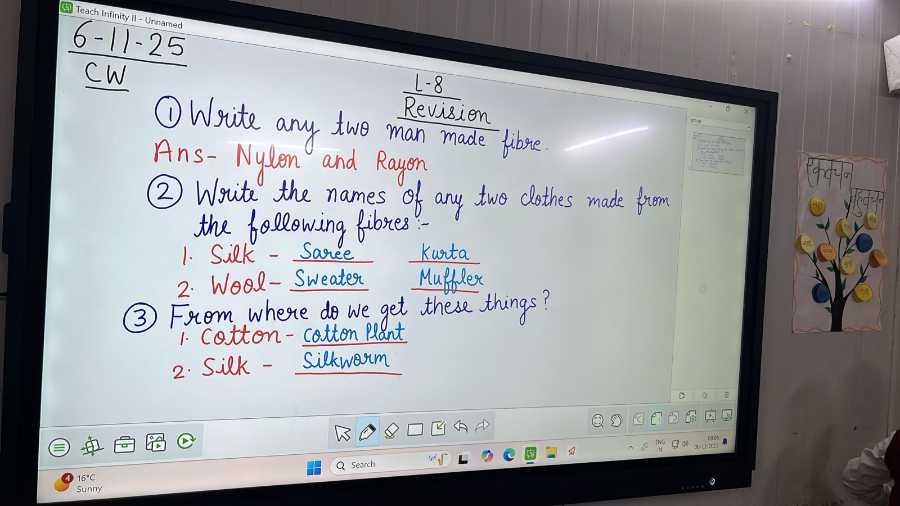 Teach Infinity II - Unnamed
6-11-25
CW
L-8
Revision
① Write any two man made fibre.
Ans- Nylon and Rayon
② Write the names of any two clothes made from
the following fibres:-
1. Silk - Saree Kurta
2. Wool - Sweater Muffler
③ From where do we get these things?
1. Cotton - Cotton Plant
2. Silk - Silkworm
एकवचन
बहुवचन
Search
ENG
IN
16°C
Sunny